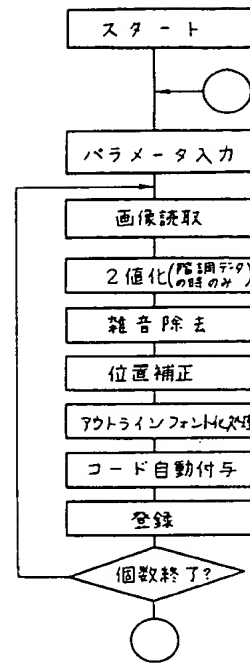 スタート
パラメータ入力
画像読取
2値化(階調データの時のみ)
雑音除去
位置補正
アウトラインフォント化処理
コード自動付与
登録
個数終了?